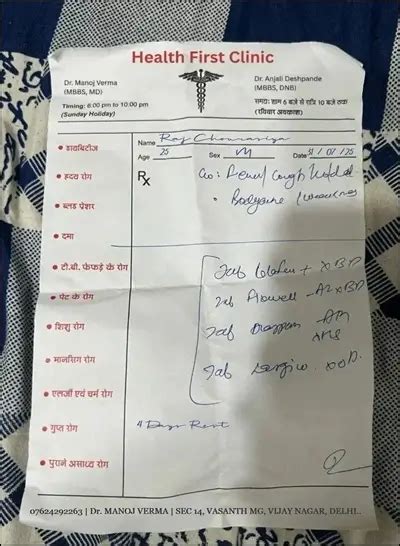 Health First Clinic
Dr. Manoj Verma
(MBBS, MD)
Timing: 6:00 pm to 10:00 pm
(Sunday Holiday)
Dr. Anjali Deshpande
(MBBS, DNB)
समय: शाम 6 बजे से रात्रि 10 बजे तक
(रविवार अवकाश)
Name Raj Chourasiya
Age 25 Sex M Date 31/07/25
डायबिटीज
हृदय रोग
ब्लड प्रेशर
दमा
टी.बी. फेफड़े के रोग
पेट के रोग
शिशु रोग
मानसिक रोग
एलर्जी एवं चर्म रोग
गुप्त रोग
पुराने असाध्य रोग
Rx
C/o: Fever/ Cough
Weakness
Tab + X BD
Tab
Tab
Tab X OD
4 Days Rest
07624292263 | Dr. MANOJ VERMA | SEC 14, VASANTH MG, VIJAY NAGAR, DELHI..